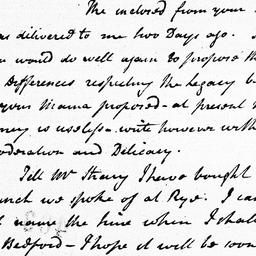 The inclosed from your
as delivered to me two Days ago.
would do well again to propose th
Differences respecting the Legacy b
your Mama proposed - at present
ney is useless - write however with
oderation and Delicacy.
Tell Mr Sharry I have bought
unch we spoke of at Rye. I can
name the time when I shall
Bedford - I hope it will be soon